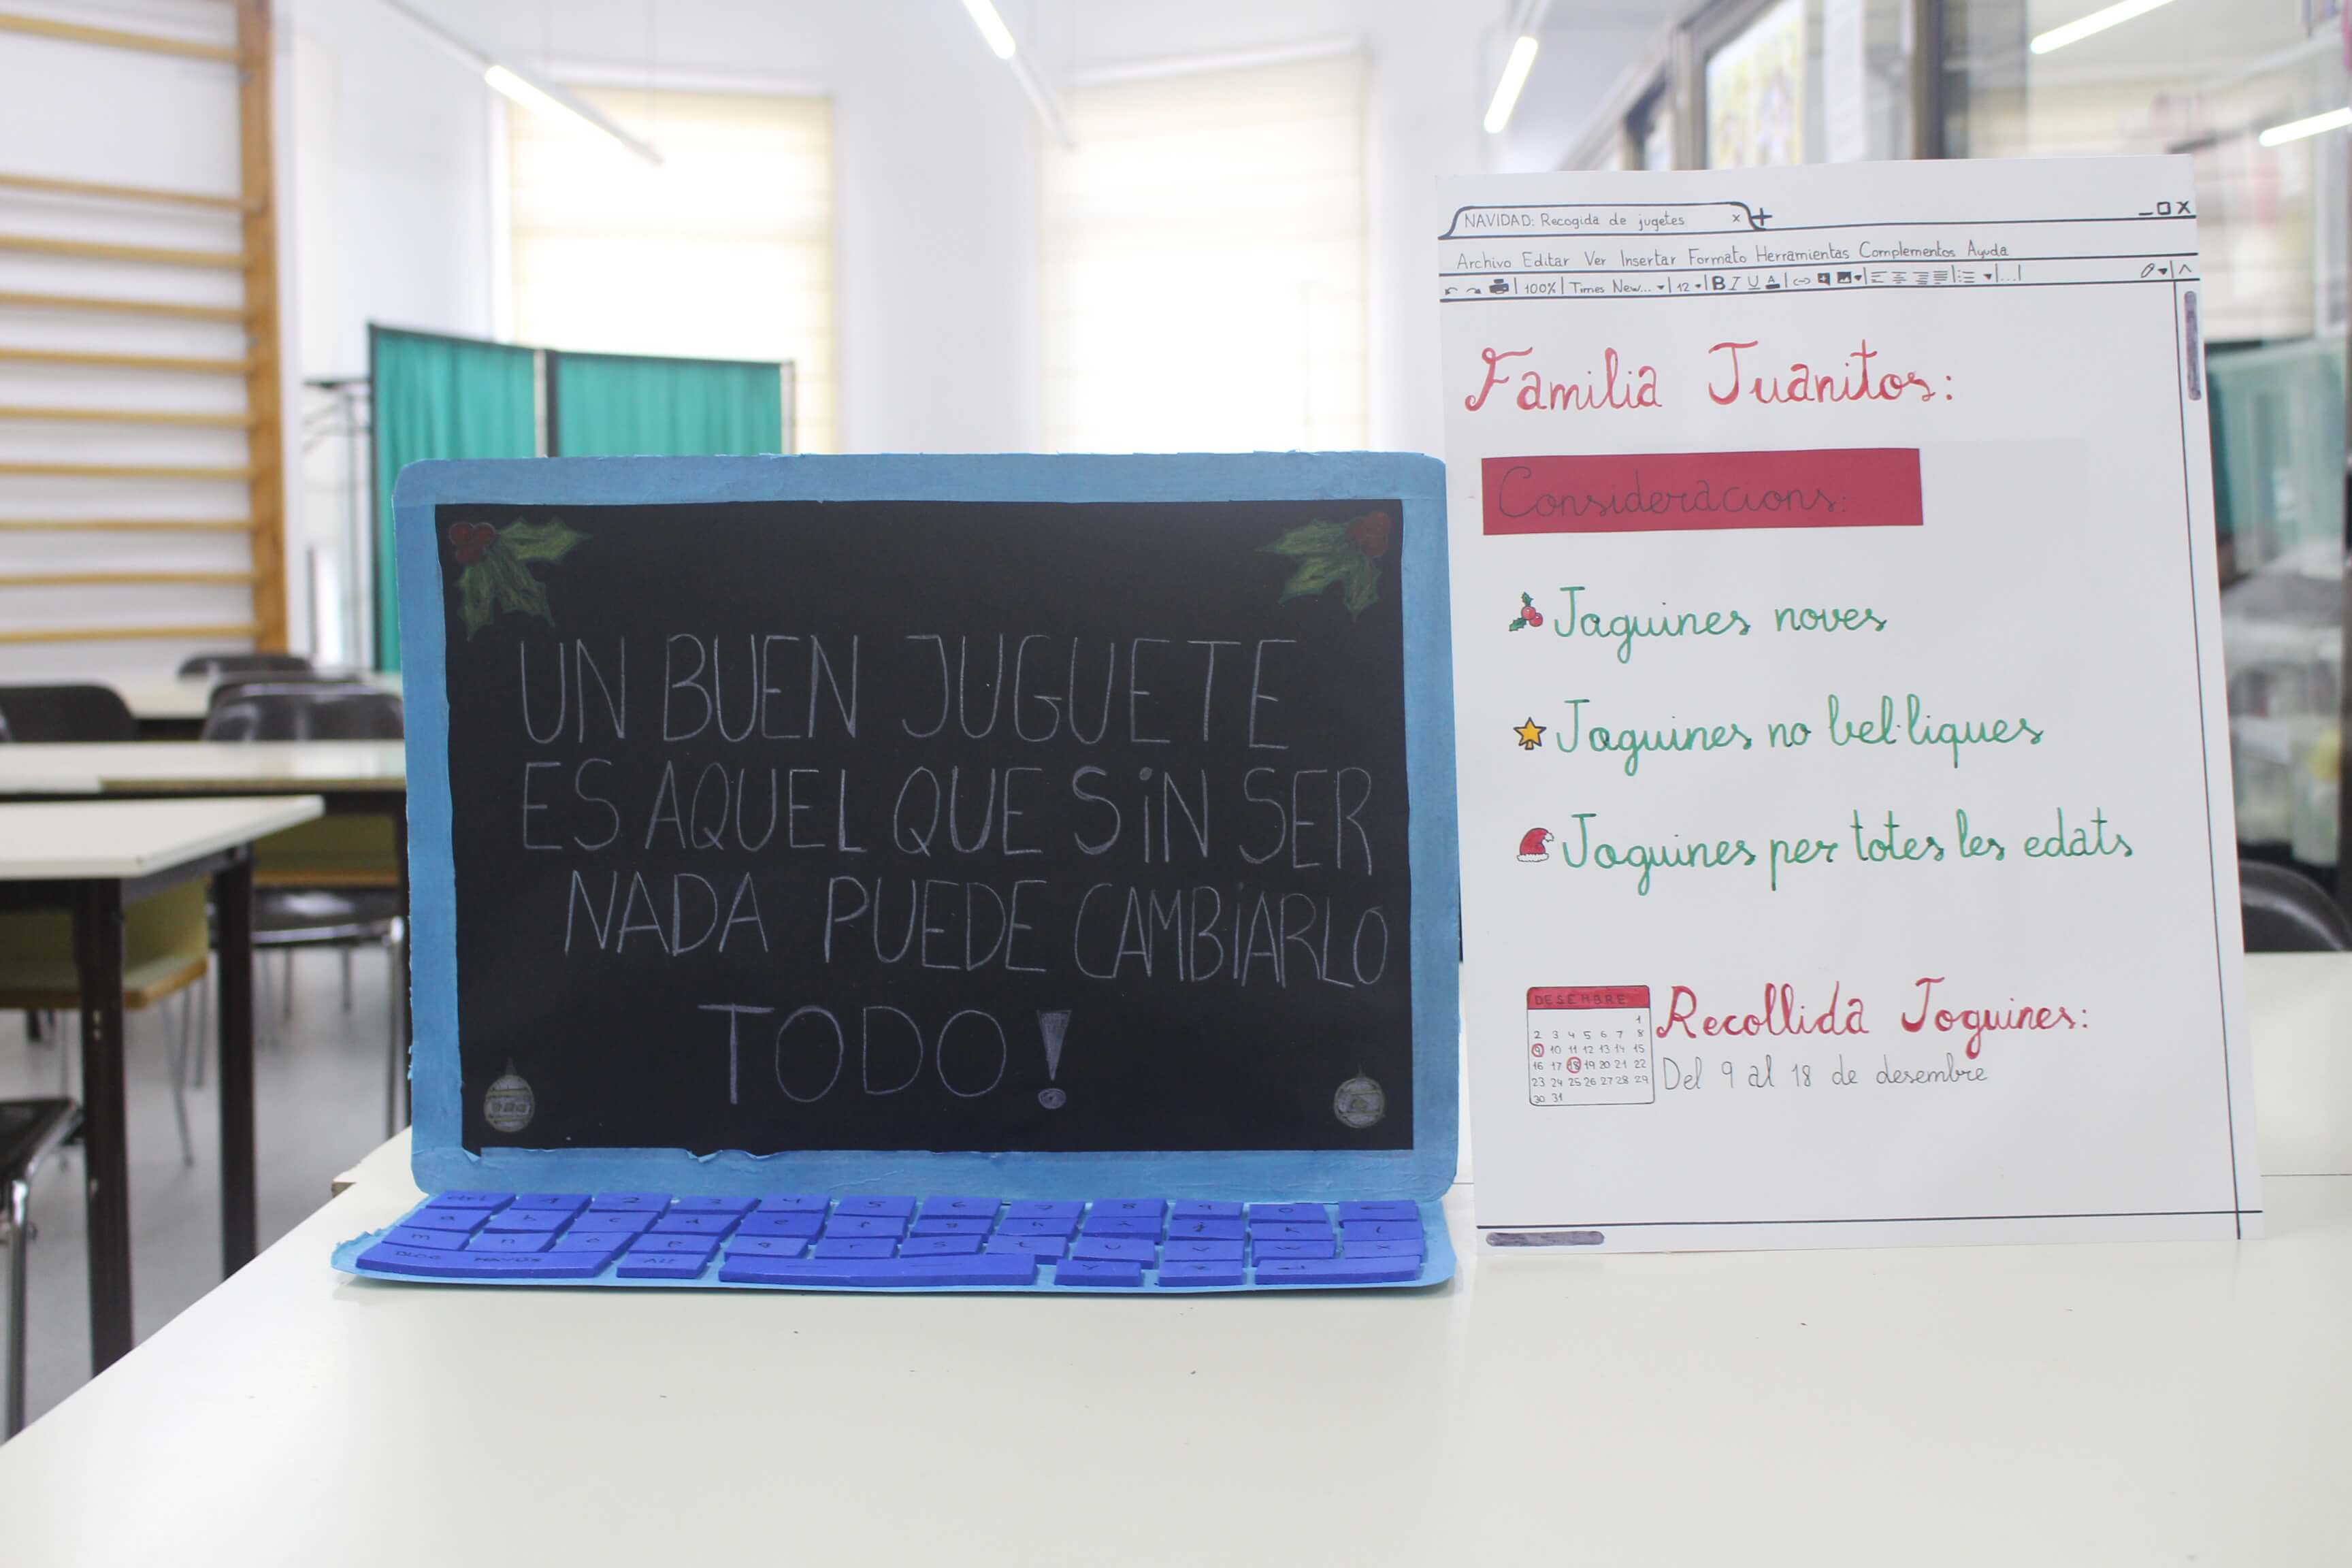 UN BUEN JUGUETE
ES AQUEL QUE SiN SER
NADA PUEDE CAMBiARLO
TODO!
ctrl 1 2 3 4 5 6 7 8 9 0
a b c d e f g h i j k l
m n o p q r s t u v w x
BLOQ MAYÚS Alt Y Z
NAVIDAD: Recogida de jugetes x +
Archivo Editar Ver Insertar Formato Herramientas Complementos Ayuda
100% Times New... 12 B I U A
Familia Juanitos:
Consideracions:
Joguines noves
Joguines no bel·liques
Joguines per totes les edats
DESEMBRE
1
2 3 4 5 6 7 8
9 10 11 12 13 14 15
16 17 18 19 20 21 22
23 24 25 26 27 28 29
30 31
Recollida Joguines:
Del 9 al 18 de desembre